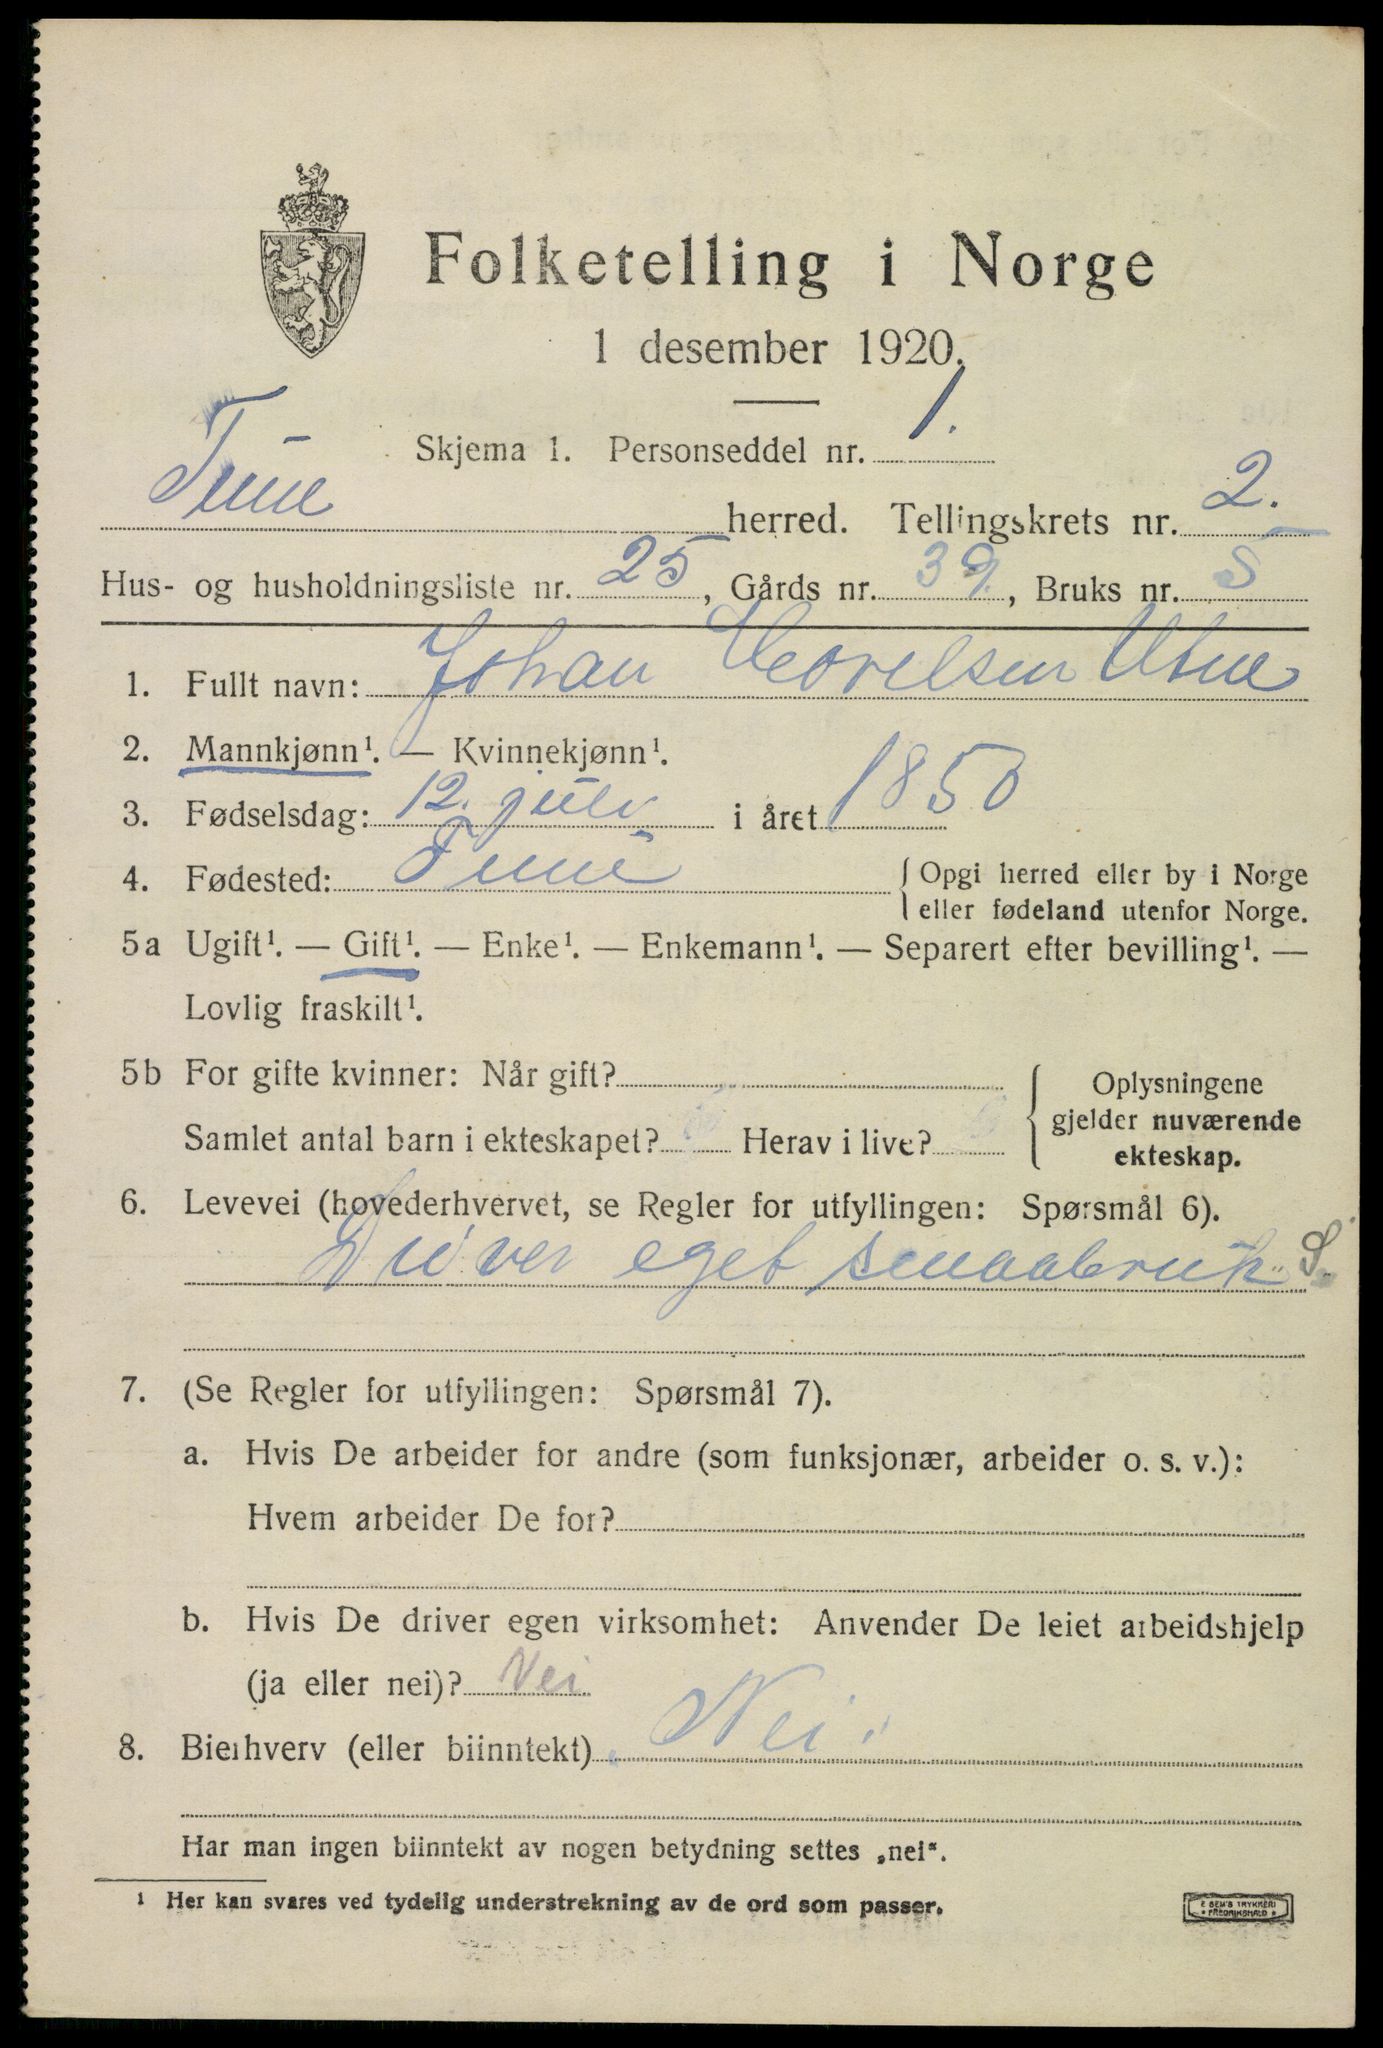 Folketelling i Norge
1 desember 1920.
Skjema 1. Personseddel nr. 1.
Tune herred. Tellingskrets nr. 2.
Hus- og husholdningsliste nr. 25, Gårds nr. 39, Bruks nr. 5
1. Fullt navn: Johan Utne
2. Mannkjønn¹. — Kvinnekjønn¹.
3. Fødselsdag: 12. juli i året 1850
4. Fødested: Tune { Opgi herred eller by i Norge
eller fødeland utenfor Norge.
5a Ugift¹. — Gift¹. — Enke¹. — Enkemann¹. — Separert efter bevilling¹. —
Lovlig fraskilt¹.
5b For gifte kvinner: Når gift? { Oplysningene
gjelder nuværende
Samlet antal barn i ekteskapet? Herav i live?
ekteskap.
6. Levevei (hovederhvervet, se Regler for utfyllingen: Spørsmål 6).
Driver eget smaabruk S.
7. (Se Regler for utfyllingen: Spørsmål 7).
a. Hvis De arbeider for andre (som funksjonær, arbeider o. s. v.):
Hvem arbeider De for?
b. Hvis De driver egen virksomhet: Anvender De leiet arbeidshjelp
(ja eller nei)? Nei
8. Bierhverv (eller biinntekt) Nei
Har man ingen biinntekt av nogen betydning settes „nei“.
¹ Her kan svares ved tydelig understrekning av de ord som passer.
E SEM'S TRYKKERI
FREDRIKSHALD